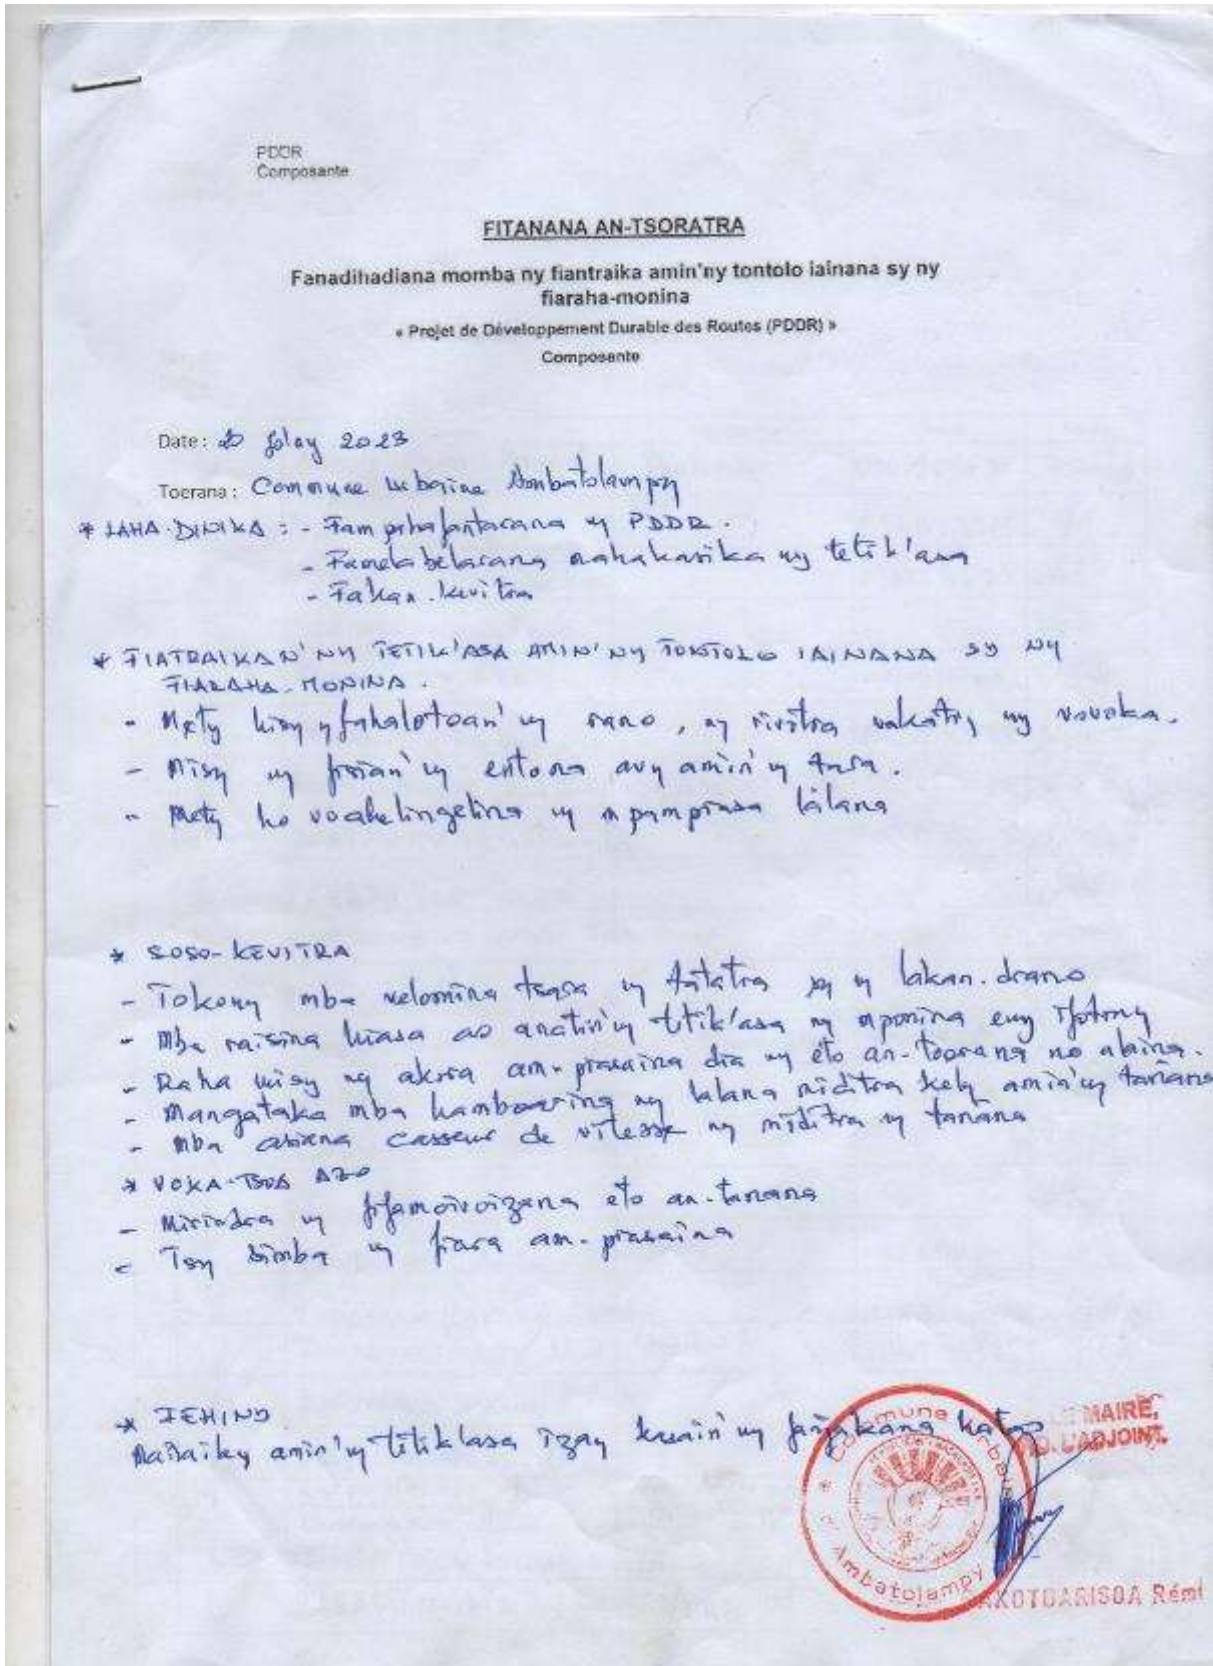 PDDR
Composante
FITANANA AN-TSORATRA
Fanadihadiana momba ny fiantraika amin'ny tontolo iainana sy ny
fiaraha-monina
« Projet de Développement Durable des Routes (PDDR) »
Composante
Date: 20 Jolay 2023
Toerana: Commune Urbaine Ambatolampy
* LAHA-DINIKA : - Fampahafantarana ny PDDR.
- Famelabelarana mahakasika ny tetik'asa
- Fakan-kevitra
* FIATRAIKAN'NY TETIK'ASA AMIN'NY TONTOLO IAINANA SY NY
FIARAHA-MONINA.
- Mety hisy ny fahalotoan'ny rano, ny rivotra vokatry ny vovoka.
- Misy ny fisian'ny entona avy amin'ny
- Mety ho voahelingelina ny mpampiasa làlana
* SOSO-KEVITRA
- Tokony mba velomina tsara ny tatatra sy ny lakan-drano
- Mba raisina hiasa ao anatin'ny tetik'asa ny mponina eny ifotony
- Raha misy ny akora am-piasaina dia ny eto an-toerana no alaina.
- Mangataka mba hamboarina ny lalana miditra kely amin'ny tanana
- Mba asiana casseur de vitesse ny miditra ny tanana
* VOKA-TSOA AZO
- Mirindra ny fifamoivoizana eto an-tanana
- Tsy simba ny fiara am-piasaina
* TEHINY
Manaiky amin'ny tetik'asa izay kasain'ny fanjakana hatao
LE MAIRE,
L'ADJOINT.
Commune Urbaine
Ambatolampy
RAKOTOARISOA Rémi